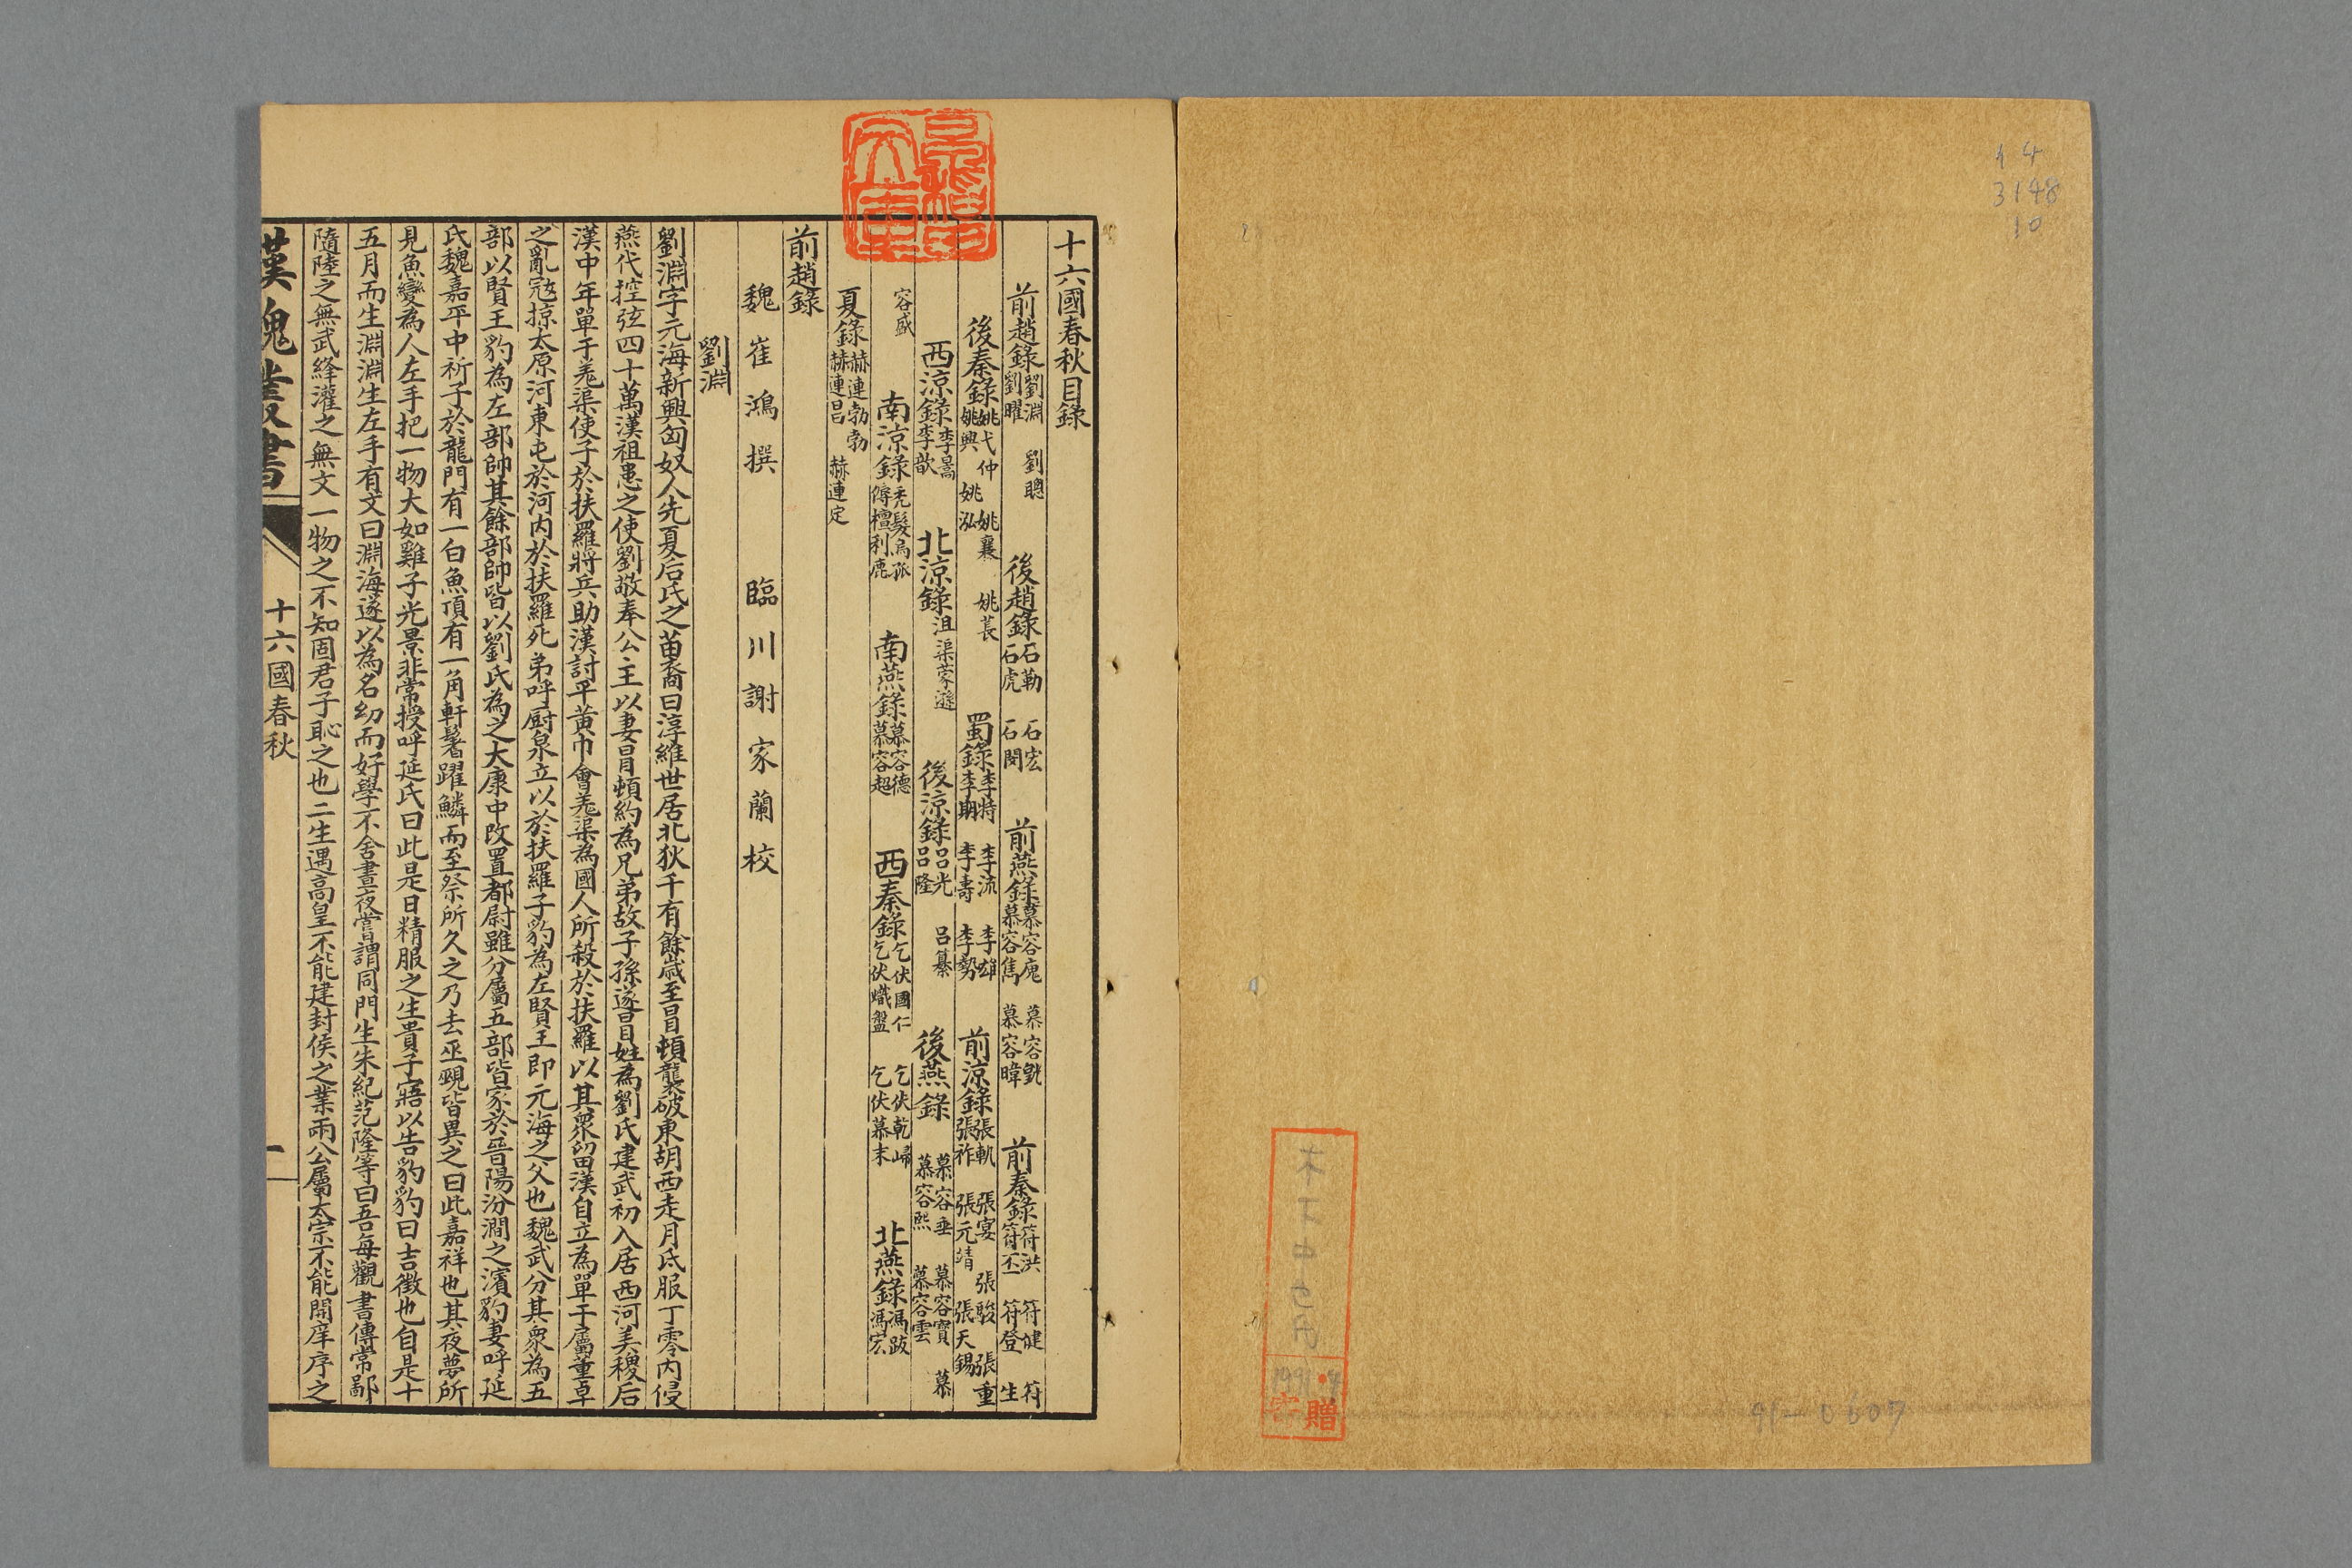 14
3148
10
91-0607
1991.9
寄贈
十六國春秋目錄
前趙錄劉淵劉聰劉曜 後趙錄石勒石宏石虎石閔 前燕錄慕容廆慕容皝慕容雋慕容暐 前秦錄符洪符健符生符丕符登
後秦錄姚弋仲姚襄姚萇姚興姚泓 蜀錄李特李流李雄李期李壽李勢 前涼錄張軌張寔張駿張重張祚張元靖張天錫
西涼錄李暠李歆 北涼錄沮渠蒙遜 後涼錄呂光呂纂呂隆 後燕錄慕容垂慕容寶慕容盛慕容熙慕容雲
南涼錄禿髮烏孤利鹿傉檀 南燕錄慕容德慕容超 西秦錄乞伏國仁乞伏乾歸乞伏熾盤乞伏慕末 北燕錄馮跋馮宏
夏錄赫連勃勃赫連昌赫連定
前趙錄
魏崔鴻撰 臨川謝家蘭校
劉淵
劉淵字元海新興匈奴人先夏后氏之苗裔曰淳維世居北狄千有餘歲至冒頓襲破東胡西走月氐服丁零內侵
燕代控弦四十萬漢祖患之使劉敬奉公主以妻冒頓約為兄弟故子孫遂冒姓為劉氏建武初入居西河美稷后
漢中年單于羗渠使子於扶羅將兵助漢討平黃巾會羗渠為國人所殺於扶羅以其眾留漢自立為單于屬董卓
之亂寇掠太原河東屯於河內於扶羅死弟呼廚泉立以於扶羅子豹為左賢王即元海之父也魏武分其眾為五
部以賢王豹為左部帥其餘部帥皆以劉氏為之大康中改置都尉雖分屬五部皆家於晉陽汾澗之濱豹妻呼延
氏魏嘉平中祈子於龍門有一白魚頂有一角軒鬐躍鱗而至祭所久之乃去巫覡皆異之曰此嘉祥也其夜夢所
見魚變為人左手把一物大如雞子光景非常授呼延氏曰此是日精服之生貴子寤以告豹豹曰吉徵也自是十
五月而生淵淵生左手有文曰淵海遂以為名幼而好學不舍晝夜嘗謂同門生朱紀范隆等曰吾每觀書傳常鄙
隨陸之無武絳灌之無文一物之不知固君子恥之也二生遇高皇不能建封侯之業兩公屬太宗不能開庠序之
漢魏叢書 十六國春秋 一